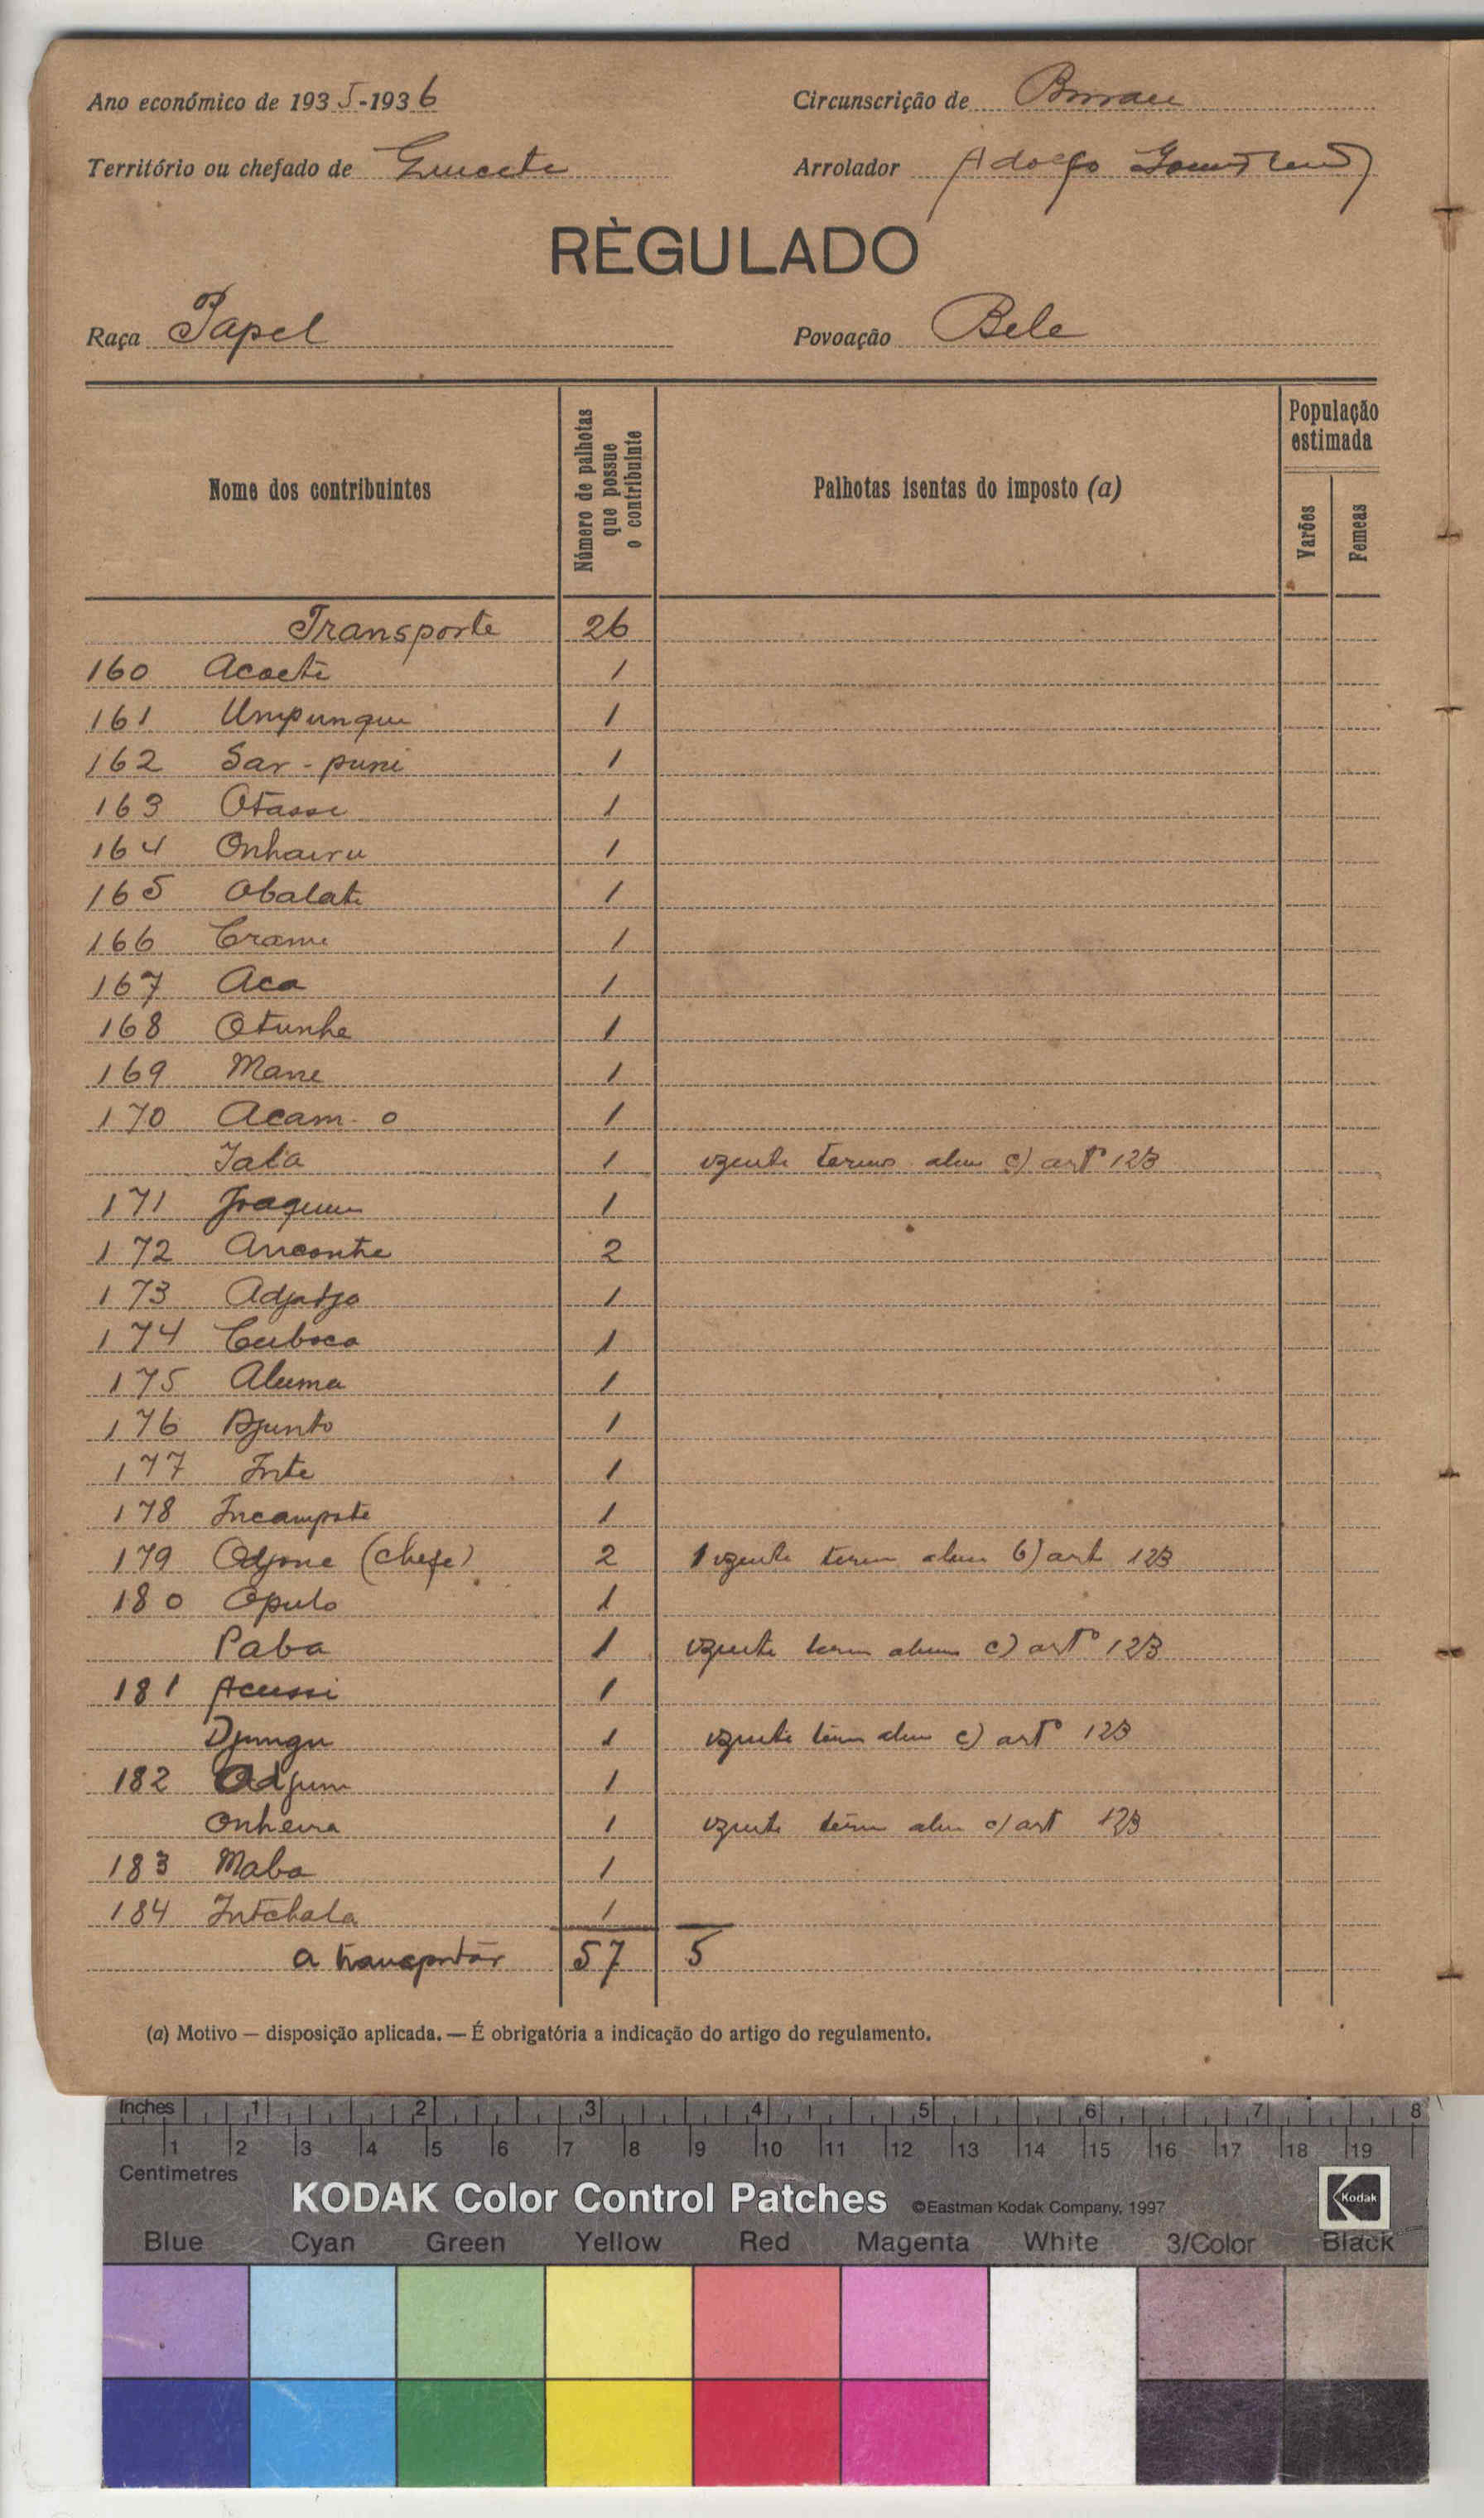 Ano económico de 1935-1936
Circunscrição de Bissau
Território ou chefado de
Arrolador Adolfo
RÈGULADO
Raça Papel
Povoação Bele
Nome dos contribuintes
Número de palhotas que possue o contribuinte
Palhotas isentas do imposto (a)
População estimada
Varões
Femeas
Transporte 26
160 Acoete 1
161 Umpungue 1
162 Sar-puni 1
163 Otasse 1
164 Onhairu 1
165 Obalate 1
166 Crame 1
167 Aca 1
168 Otunhe 1
169 Mane 1
170 Acam-o 1
Iala 1 c) artº 123
171 Joaquim 1
172 2
173 1
174 1
175 Aluma 1
176 Djunto 1
177 Inte 1
178 Incampote 1
179 Odjone (chefe) 2 1 b) art 123
180 Opulo 1
Paba 1 c) artº 123
181 Acussi 1
Djungu 1 c) artº 123
182 Adjum 1
Onheira 1 c) art 123
183 Maba 1
184 Intchala 1
a transportar 57 5
(a) Motivo — disposição aplicada. — É obrigatória a indicação do artigo do regulamento.
Inches 1 2 3 4 5 6 7 8
1 2 3 4 5 6 7 8 9 10 11 12 13 14 15 16 17 18 19
Centimetres
KODAK Color Control Patches ©Eastman Kodak Company, 1997 Kodak
Blue Cyan Green Yellow Red Magenta White 3/Color Black